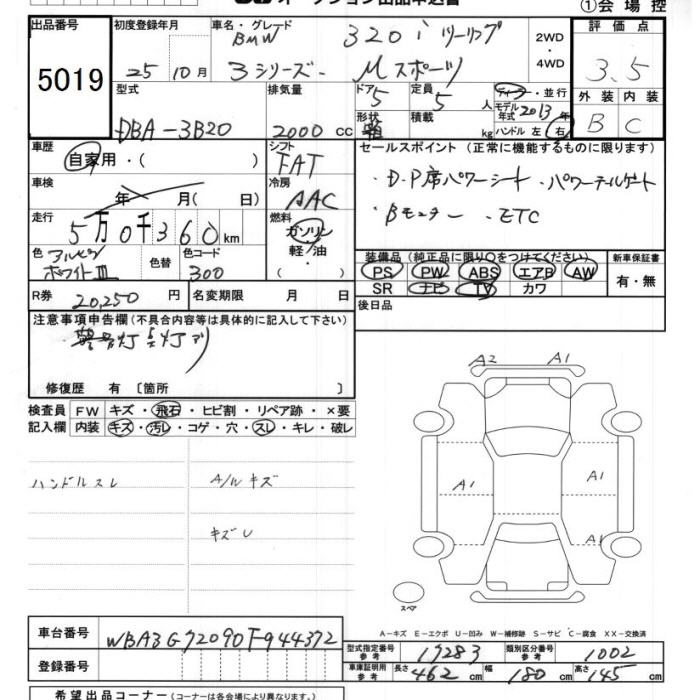 オークション出品申込書 ①会場控
出品番号 初度登録年月 車名・グレード 評価点
5019 25年10月 BMW 3シリーズ 320i ツーリング Mスポーツ 2WD・4WD 3.5
型式 排気量 ドア 定員 ディーラー・並行 外装 内装
DBA-3B20 2000cc 5 5人 モデル年式 2013年 B C
形状 積載 kg ハンドル 左 右
車歴 シフト セールスポイント(正常に機能するものに限ります)
自家用・( ) FAT ・D・P席パワーシート ・パワーテールゲート
車検 冷房 ・Bモニター ・ETC
年 月( 日) AAC
走行 燃料
5万0千360km ガソリン 軽/油 ( )
色 色替 色コード 装備品(純正品に限り○をつけてください) 新車保証書
アルピンホワイトIII 300 PS PW ABS エアB AW 有・無
SR ナビ TV カワ
R券 20,250円 名変期限 月 日 後日品
注意事項申告欄(不具合内容等は具体的に記入して下さい)
修復歴 有 〔箇所 〕
検査員 FW キズ・飛石・ヒビ割・リペア跡・×要
記入欄 内装 キズ・汚レ・コゲ・穴・スレ・キレ・破レ
ハンドルスレ A/Wキズ
キズU
A2 A1
A1 A1
A1
スペア
A-キズ E-エクボ U-凹み W-補修跡 S-サビ C-腐食 XX-交換済
車台番号 WBA3G72090F944372
登録番号
型式指定番号 参考 17283 類別区分番号 参考 1002
車庫証明用 参考 長さ 462cm 幅 180cm 高さ 145cm
希望出品コーナー(コーナーは各会場により異なります)